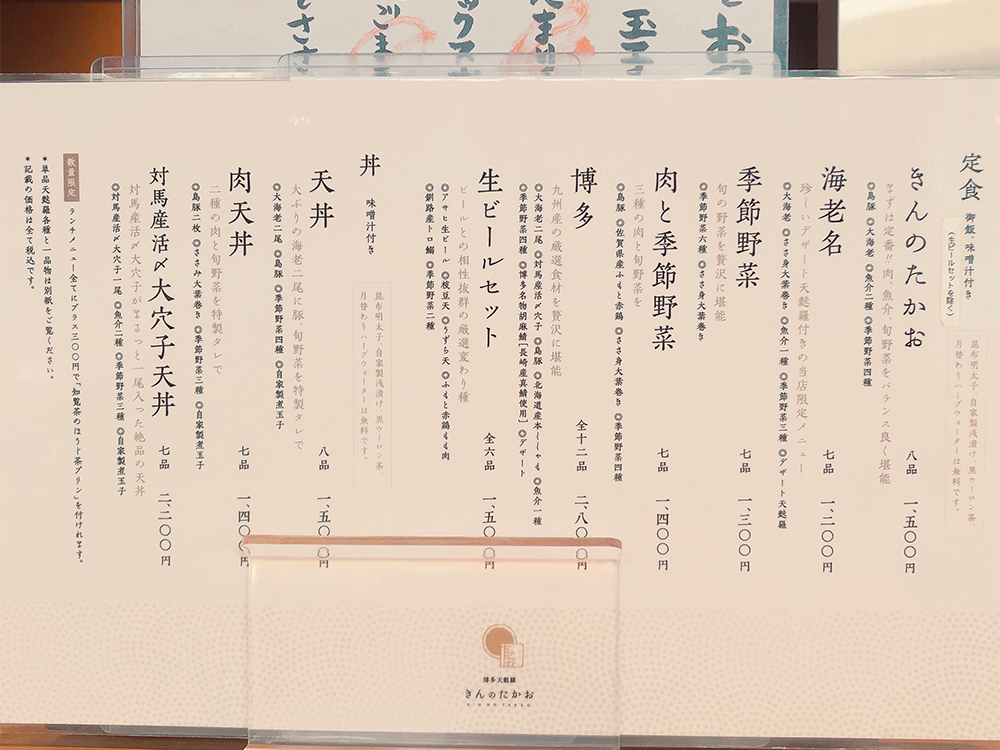 定食
御飯、味噌汁付き
(生ビールセットを除く)
昆布明太子、自家製浅漬け、黒ウーロン茶、
月替わりハーブウォーターは無料です。
きんのたかお 八品 一、五〇〇円
まずは定番!!肉、魚介、旬野菜をバランス良く堪能
◎島豚 ◎大海老 ◎魚介二種 ◎季節野菜四種
海老名 七品 一、二〇〇円
珍しいデザート天麩羅付きの当店限定メニュー
◎大海老 ◎ささ身大葉巻き ◎魚介一種 ◎季節野菜三種 ◎デザート天麩羅
季節野菜 七品 一、三〇〇円
旬の野菜を贅沢に堪能
◎季節野菜六種 ◎ささ身大葉巻き
肉と季節野菜 七品 一、四〇〇円
三種の肉と旬野菜を
◎島豚 ◎佐賀県産ふもと赤鶏 ◎ささ身大葉巻き ◎季節野菜四種
博多 全十二品 二、八〇〇円
九州産の厳選食材を贅沢に堪能
◎大海老二尾 ◎対馬産活〆穴子 ◎島豚 ◎北海道産本ししゃも ◎魚介一種
◎季節野菜四種 ◎博多名物胡麻鯖[長崎産真鯖使用] ◎デザート
生ビールセット 全六品 一、五〇〇円
ビールとの相性抜群の厳選変わり種
◎アサヒ生ビール ◎枝豆天 ◎うずら天 ◎ふもと赤鶏もも肉
◎釧路産トロ鰯 ◎季節野菜二種
丼
味噌汁付き
昆布明太子、自家製浅漬け、黒ウーロン茶、
月替わりハーブウォーターは無料です。
天丼 八品 一、五〇
大ぶりの海老二尾に豚、旬野菜を特製タレで
◎大海老二尾 ◎島豚 ◎季節野菜四種 ◎自家製煮玉子
肉天丼 七品 一、四〇〇円
二種の肉と旬野菜を特製タレで
◎島豚二枚 ◎ささみ大葉巻き ◎季節野菜三種 ◎自家製煮玉子
対馬産活〆大穴子天丼 七品 二、二〇〇円
対馬産活〆大穴子がまるっと一尾入った絶品の天丼
◎対馬産活〆大穴子一尾 ◎魚介二種 ◎季節野菜三種 ◎自家製煮玉子
数量限定 ランチメニュー全てにプラス三〇〇円で「知覧茶のほうじ茶プリン」を付けれます。
*単品天麩羅各種と一品物は別紙をご覧ください。
*記載の価格は全て税込です。
博多天麩羅
きんのたかお
KIN NO TAKAO